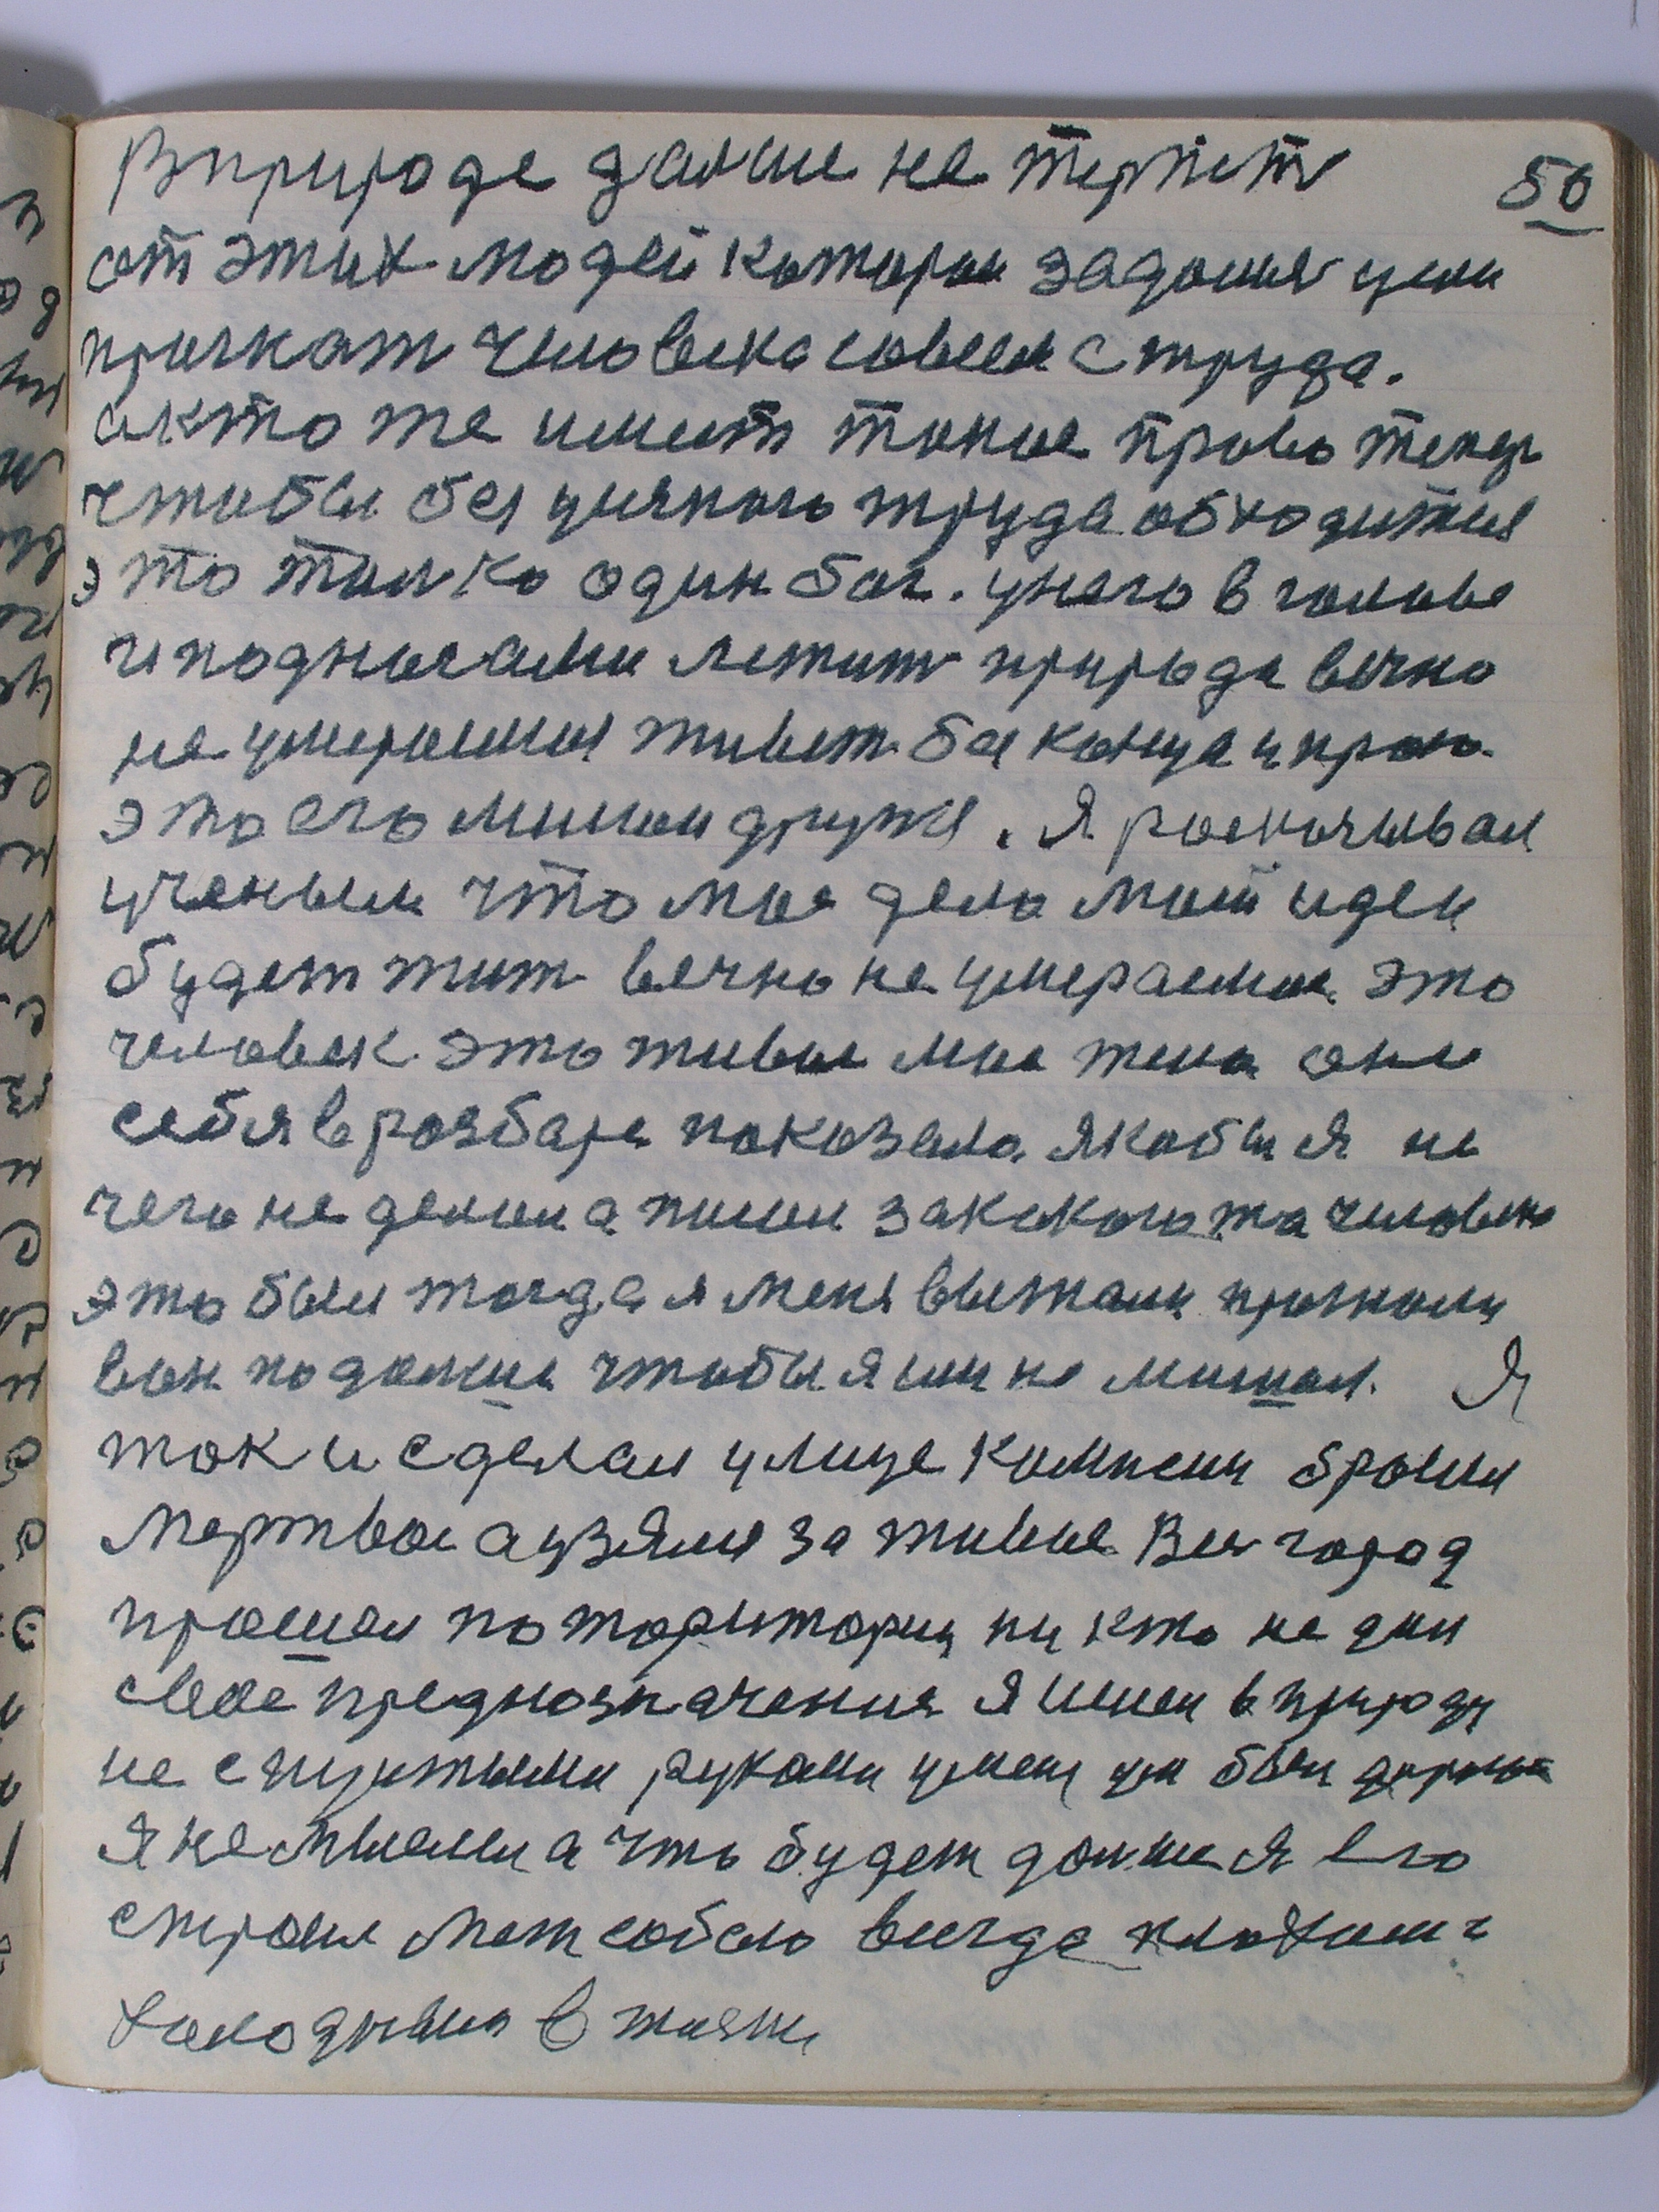 В природе далше не терпет 56
от этих людей которои задалис цели
прогнат человека совсем с труда.
а кто же имеет такое право тепер
чтобы без умного труда обходится
это толко один бог. у него в голове
и под ногами лежит природа вечно
не умираемая живет без конца и краю
это его милои друже. Я росказывал
ученым что мое дело моей идеи
будет жит вечно не умераемое это
человек это живое мое тело оно
себя в разборе показало. якобы я не
чего не делои а пишеш за какого то человека
это было тогда я меня выжали прогнали
вон подальше чтобы я им не мешал. Я
так и сделал улице комисии бросил
мертвое а узялся за живое Вес город
прошел по тореторыи ни кто не дал
свое предназначения я шел в природу
не с пустыми руками у меня уже были
Я не мыслил а что будет далше я его
строил меж собою всегда плохим и
холодным в жизни